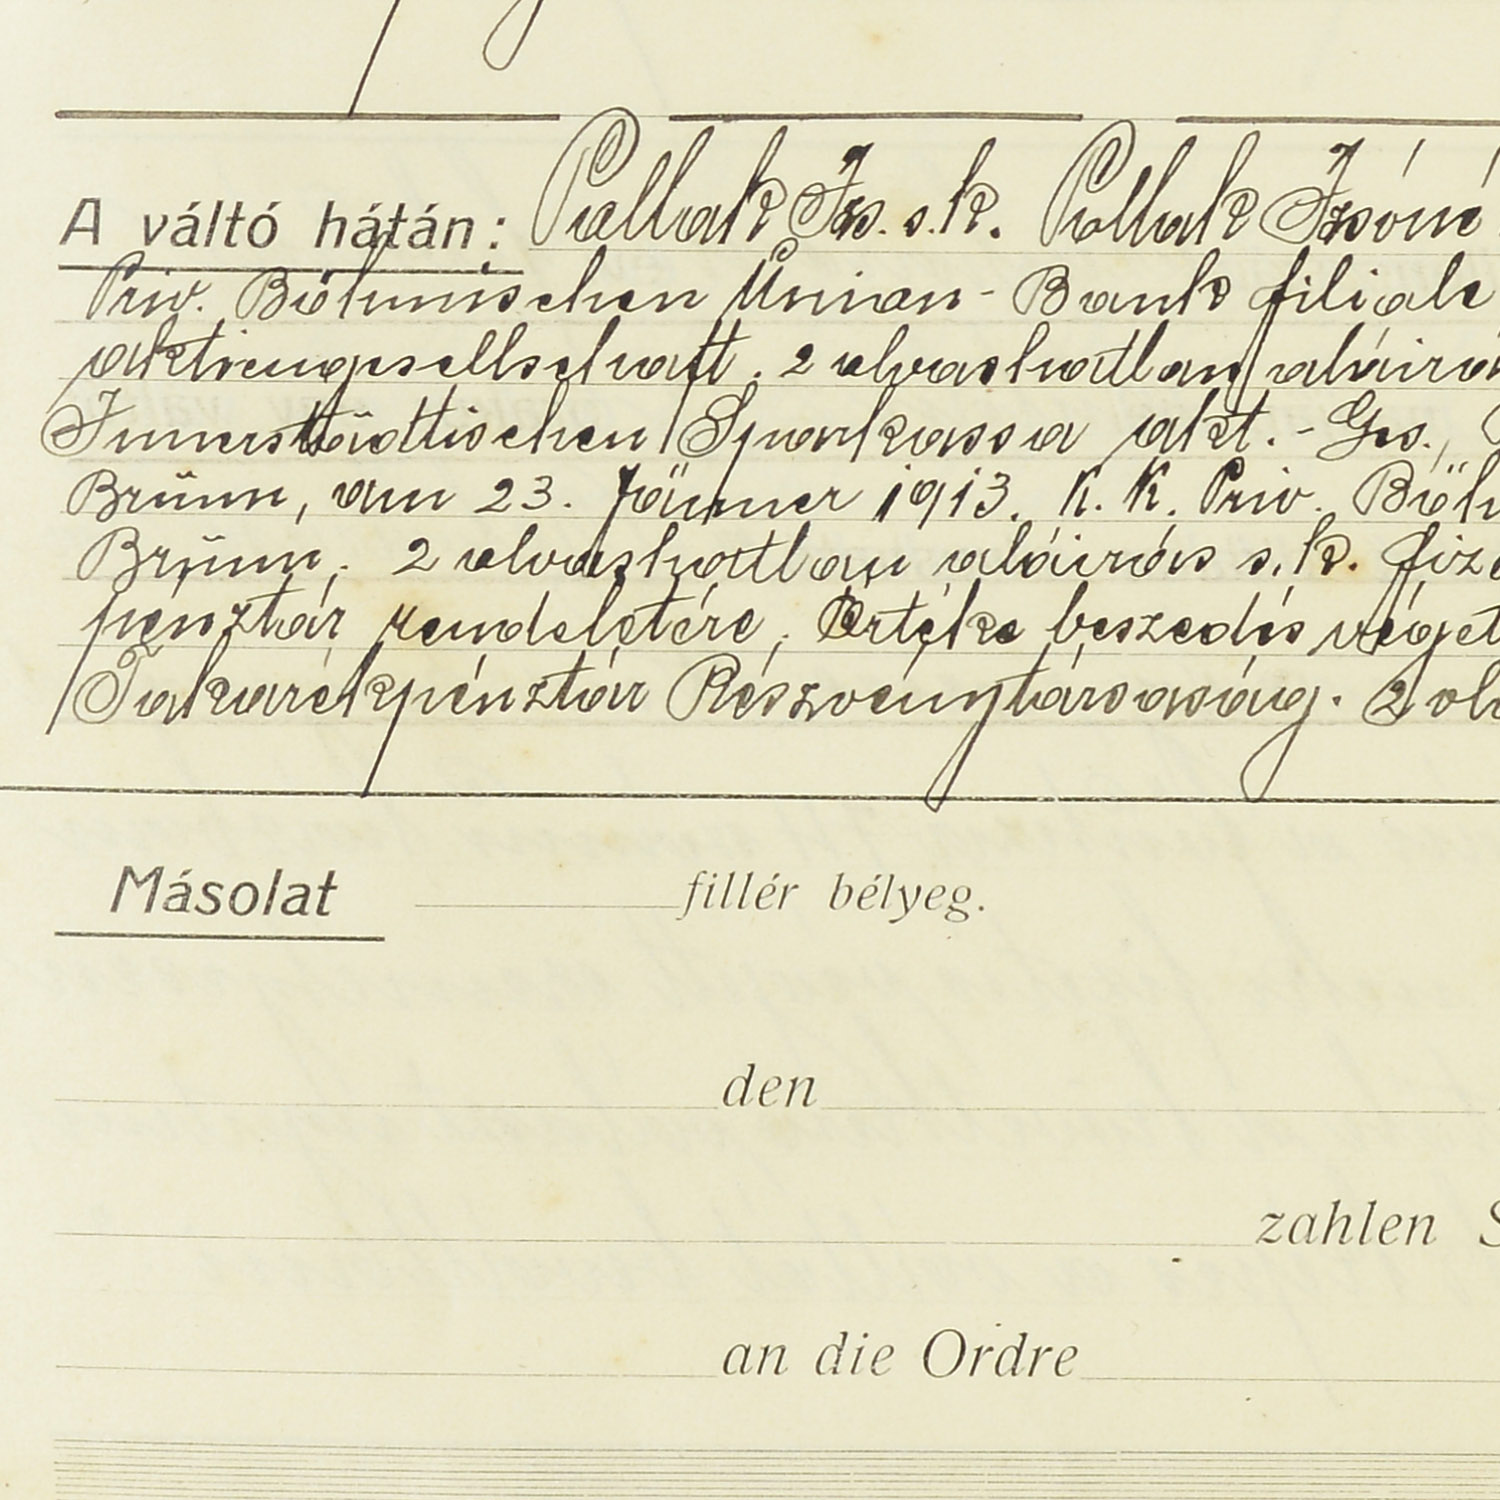 A váltó hátán: Pollak Izs. s.k. Pollak Izsóné
Priv. Böhmischen Union-Bank filiale
aktiengesellschaft. 2 olvashatlan aláirás
Innerstädtischen Sparkassa akt.-Ges.,
Brünn, am 23. Jänner 1913. K. K. Priv. Böh
Brünn, 2 olvashatlan aláirás s.k. fize
pénztár rendeletére, Értéke beszedés végett
Takarékpénztár Részvénytársaság. 2 olv
Másolat fillér bélyeg.
den
zahlen S
an die Ordre